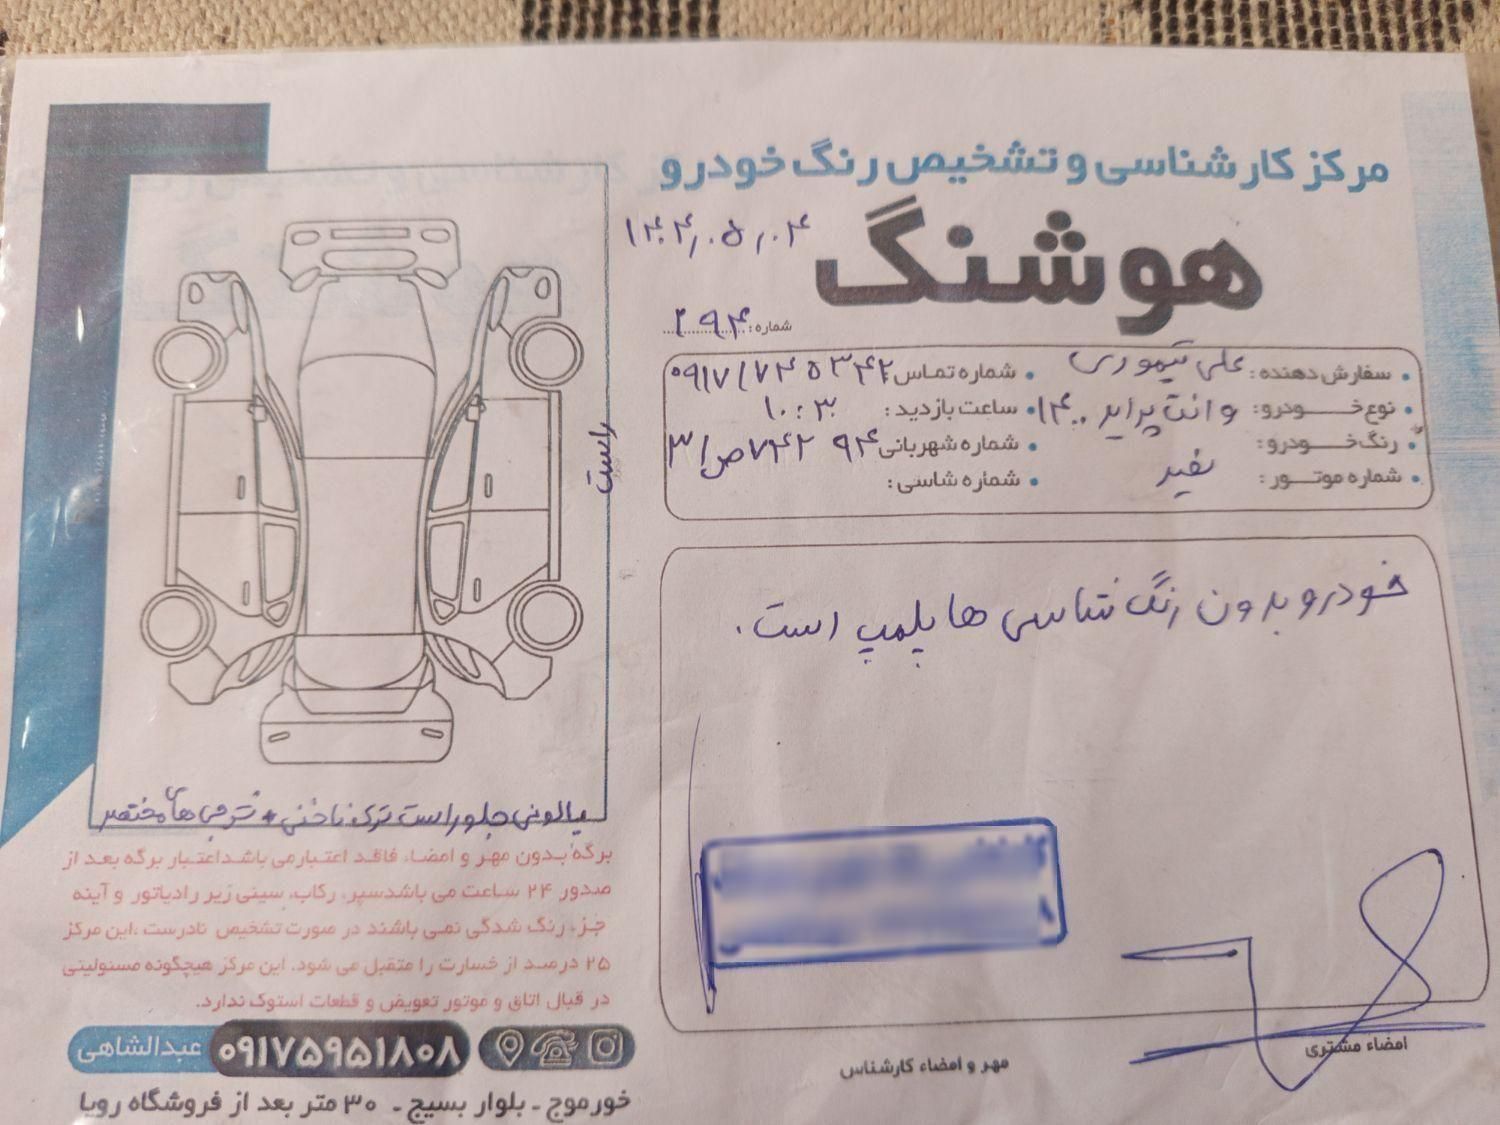 مرکز کارشناسی و تشخیص رنگ خودرو
هوشنگ
۱۴۰۴/۰۵/۰۴
شماره: ۲۹۴
سفارش دهنده: علی تیموری
شماره تماس: ۰۹۱۷۱۷۴۵۳۴۲
نوع خودرو: وانت پراید ۱۴۰۰
ساعت بازدید: ۱۰:۳۰
رنگ خودرو: سفید
شماره شهربانی: ۹۴ ۷۴۲ص۳۱
شماره موتور:
شماره شاسی:
خودرو بدون رنگ شاسی ها پلمپ است.
راست
پالونی جلو راست ترک ناخنی + خرجی های مختصر
برگه بدون مهر و امضاء فاقد اعتبار می باشد اعتبار برگه بعد از
صدور ۲۴ ساعت می باشد سپر، رکاب، سینی زیر رادیاتور و آینه
جزء رنگ شدگی نمی باشند در صورت تشخیص نادرست ،این مرکز
۲۵ درصد از خسارت را متقبل می شود. این مرکز هیچگونه مسئولیتی
در قبال اتاق و موتور تعویض و قطعات استوک ندارد.
مهر و امضاء کارشناس
امضاء مشتری
۰۹۱۷۵۹۵۱۸۰۸ عبدالشاهی
خورموج - بلوار بسیج - ۳۰ متر بعد از فروشگاه رویا